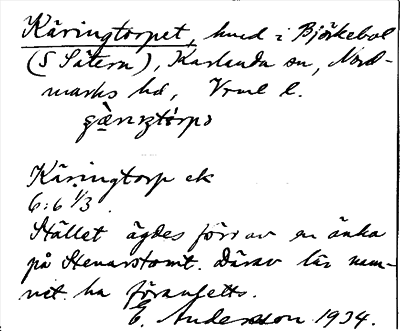 Käringtorpet, hmd i Björkebol
(S Sätern), Karlanda sn, Nord-
marks hd, Vrml l.
Käringtorp ek
6:6 1/3
Stället ägdes förr av en änka
på Stenarstomt. Därav lär nam-
net ha föranletts.
E. Andersson 1934.